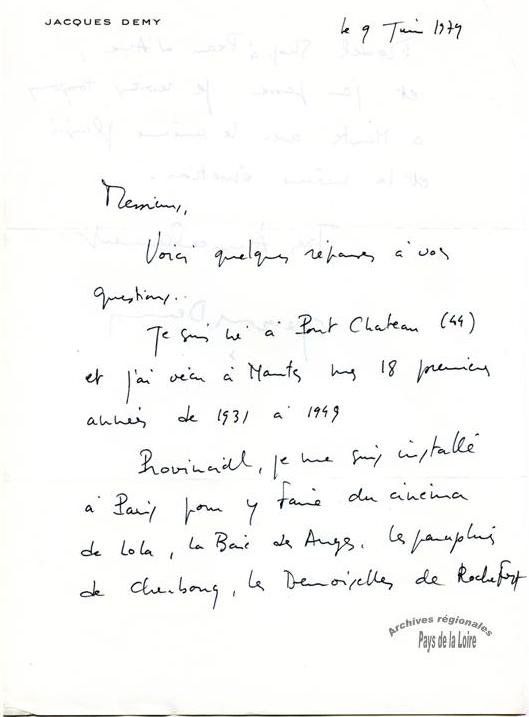 JACQUES DEMY
le 9 Juin 1979
Messieurs,
Voici quelques réponses à vos
questions..
Je suis né à Pont Chateau (44)
et j'ai vécu à Nantes mes 18 premières
années de 1931 à 1949
Provincial, je me suis installé
à Paris pour y faire du cinéma
de Lola, la Baie des Anges, les parapluies
de Cherbourg, les Demoiselles de Rochefort
Archives régionales
Pays de la Loire